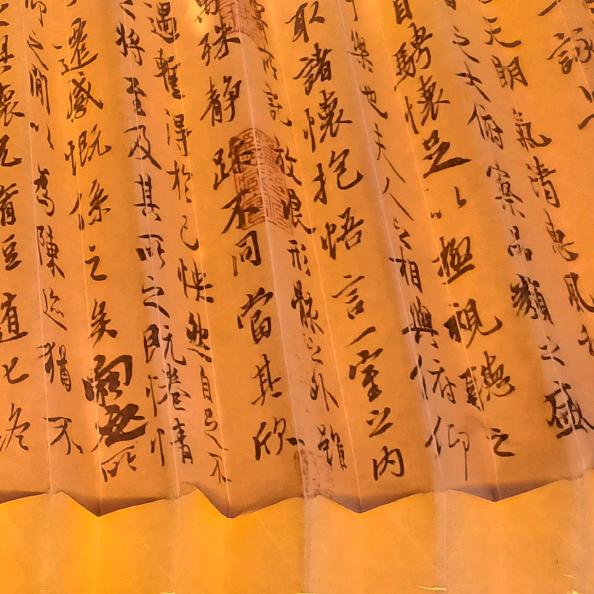 詠
天朗氣清惠風
之大俯察品類之盛
騁懷足以極視聽之
樂也夫人之相與俯仰
取諸懷抱悟言一室之內
放浪形骸之外雖
殊靜躁不同當其欣
遇暫得於己快然自足不
之將至及其所之既惓情
遷感慨係之矣向之所
仰之間以為陳迹猶不
懷況脩短隨化終